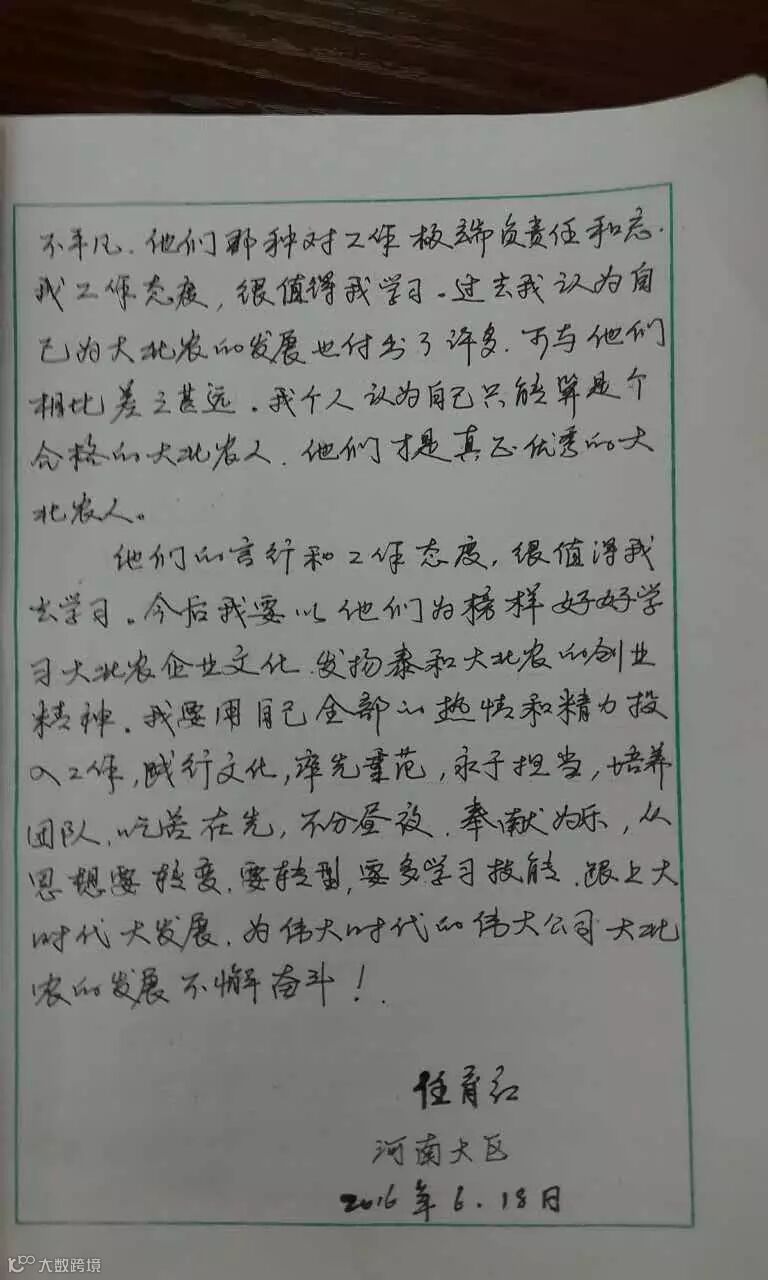 不平凡.他们那种对工作极端负责任和忘.
我工作态度,很值得我学习。过去我认为自
己为大北农的发展也付出了许多.可与他们
相比差之甚远.我个人认为自己只能算是个
合格的大北农人.他们才是真正优秀的大
北农人。
他们的言行和工作态度,很值得我
去学习。今后我要以他们为榜样好好学
习大北农企业文化.发扬泰和大北农的创业
精神.我要用自己全部的热情和精力投
入工作,践行文化,率先垂范,永于担当,培养
团队.吃苦在先,不分昼夜.奉献为乐,从
思想要转变.要转型,要多学习技能.跟上大
时代大发展.为伟大时代的伟大公司大北
农的发展不懈奋斗!
任育红
河南大区
2016年6.18日
大数跨境